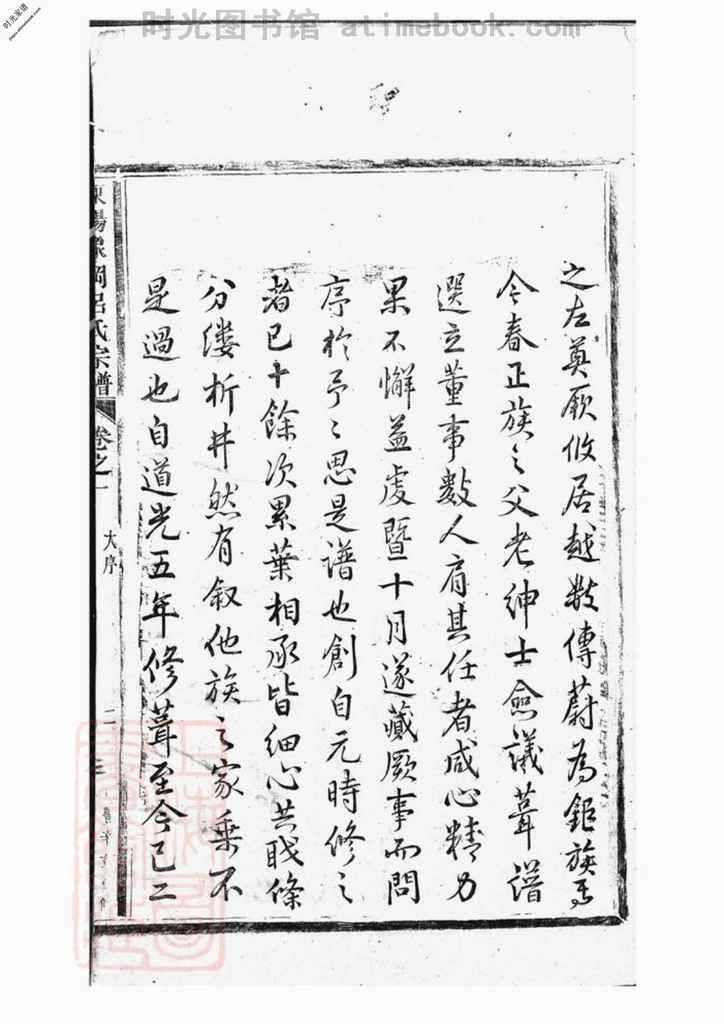 时光图书馆 atimebook.com
时光家谱
之左奠厥攸居越数傳蔚為鉅族焉
今春正族之父老紳士僉議葺譜
選立董事數人肩其任者咸心精力
果不懈益虔暨十月遂蕆厥事而問
序於予〻思是譜也創自元時修之
者已十餘次累葉相承皆細心共眂條
分缕析井然有叙他族之家乘不
是過也自道光五年修葺至今已二
東陽 岡吕氏宗譜
卷之一
大序
二